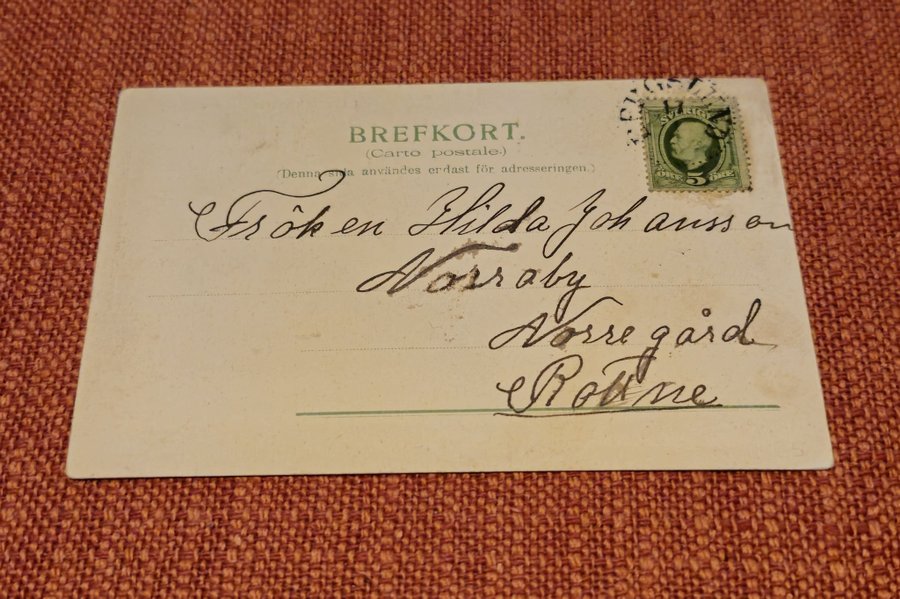 BREFKORT.
(Carte postale.)
(Denna sida användes endast för adresseringen.)
SVERIGE
5
ÖRE
Fröken Hilda Johansson
Norraby
Norregård
Rottne